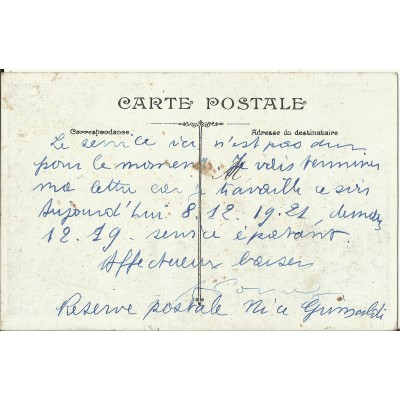 CARTE POSTALE
Correspondance
Adresse du destinataire
Le service ici n'est pas dur
pour le moment. Je vais terminer
ma lettre car je travaille ce soir
Aujourd'hui 8. 12. 19. 21, demain
12. 19. service épatant
Affectueux baiser
Reserve postale Nice Grimaldi